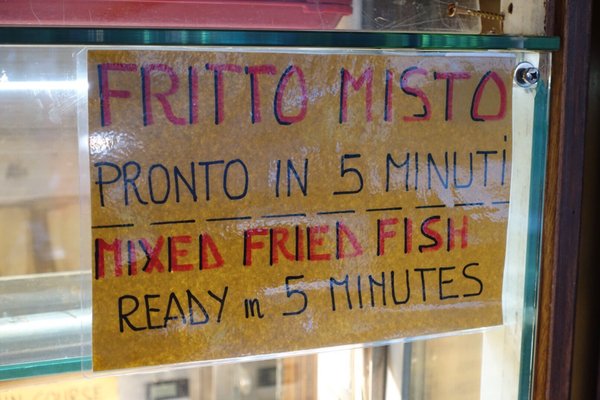 FRITTO MISTO
PRONTO IN 5 MINUTi
MIXED FRIED FISH
READY in 5 MINUTES
COURSE